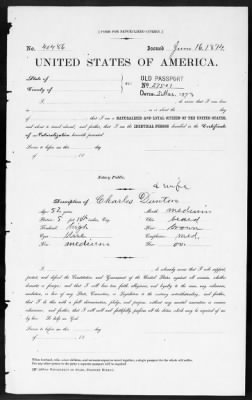 [FORM FOR NATURALIZED CITIZEN.]
No. 40486 Issued June 16, 1874
UNITED STATES OF AMERICA.
State of
County of
OLD PASSPORT
No.
Dated 1873
I, do swear that I was born
in on or about the day of
that I am a NATURALIZED AND LOYAL CITIZEN OF THE UNITED STATES,
and about to travel abroad; and further, that I am the IDENTICAL PERSON described in the Certificate
of Naturalization herewith presented.
Sworn to before me, this day
of 18
Notary Public.
& wife
Description of Charles
Age: 52 years Mouth: medium
Stature: 5 feet inches, Eng. Chin: beard
Forehead: high Hair: brown
Eyes: blue Complexion: med.
Nose: medium Face: oval
I, do solemnly swear that I will support,
protect, and defend the Constitution and Government of the United States against all enemies, whether
domestic or foreign; and that I will bear true faith, allegiance, and loyalty to the same, any ordinance,
resolution, or law of any State, Convention, or Legislature to the contrary notwithstanding; and further,
that I do this with a full determination, pledge, and purpose, without any mental reservation or evasion
whatsoever; and further, that I will well and faithfully perform all the duties which may be required of
me by law: So help me God.
Sworn to before me, this day
of 18